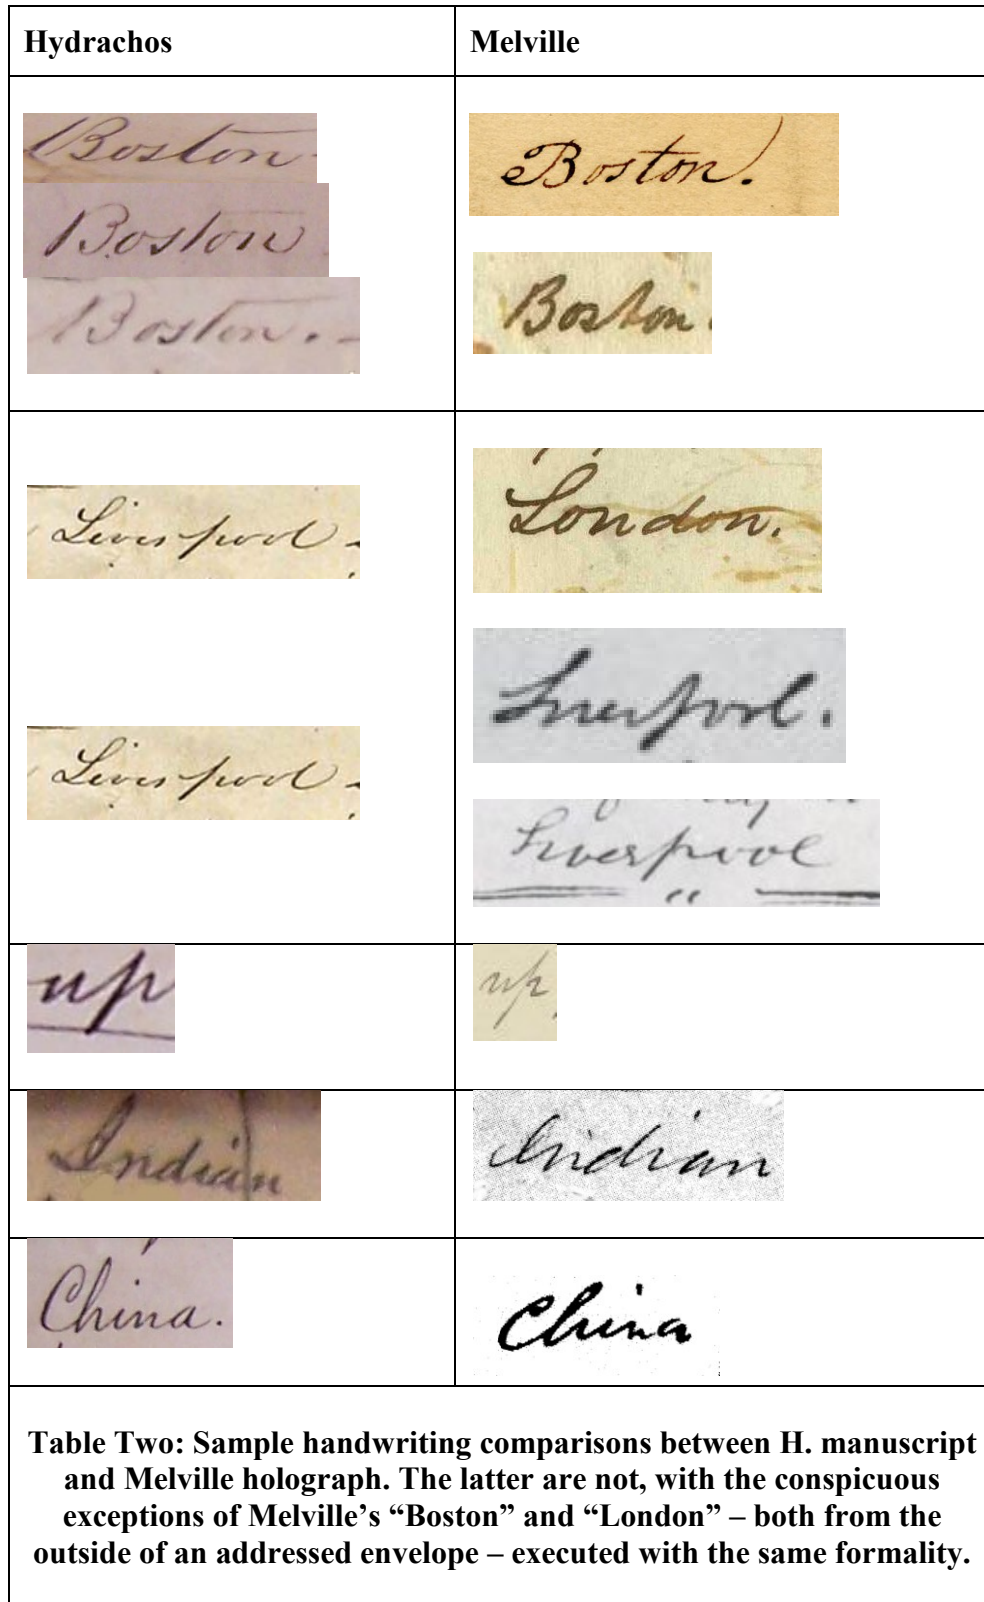 Hydrachos
Melville
Boston.
Boston
Boston. -
Boston.
Boston.
Liverpool -
Liverpool -
London.
Liverpool.
Liverpool
"
up
up
Indian
Indian
China.
China
Table Two: Sample handwriting comparisons between H. manuscript
and Melville holograph. The latter are not, with the conspicuous
exceptions of Melville's “Boston” and “London” – both from the
outside of an addressed envelope – executed with the same formality.